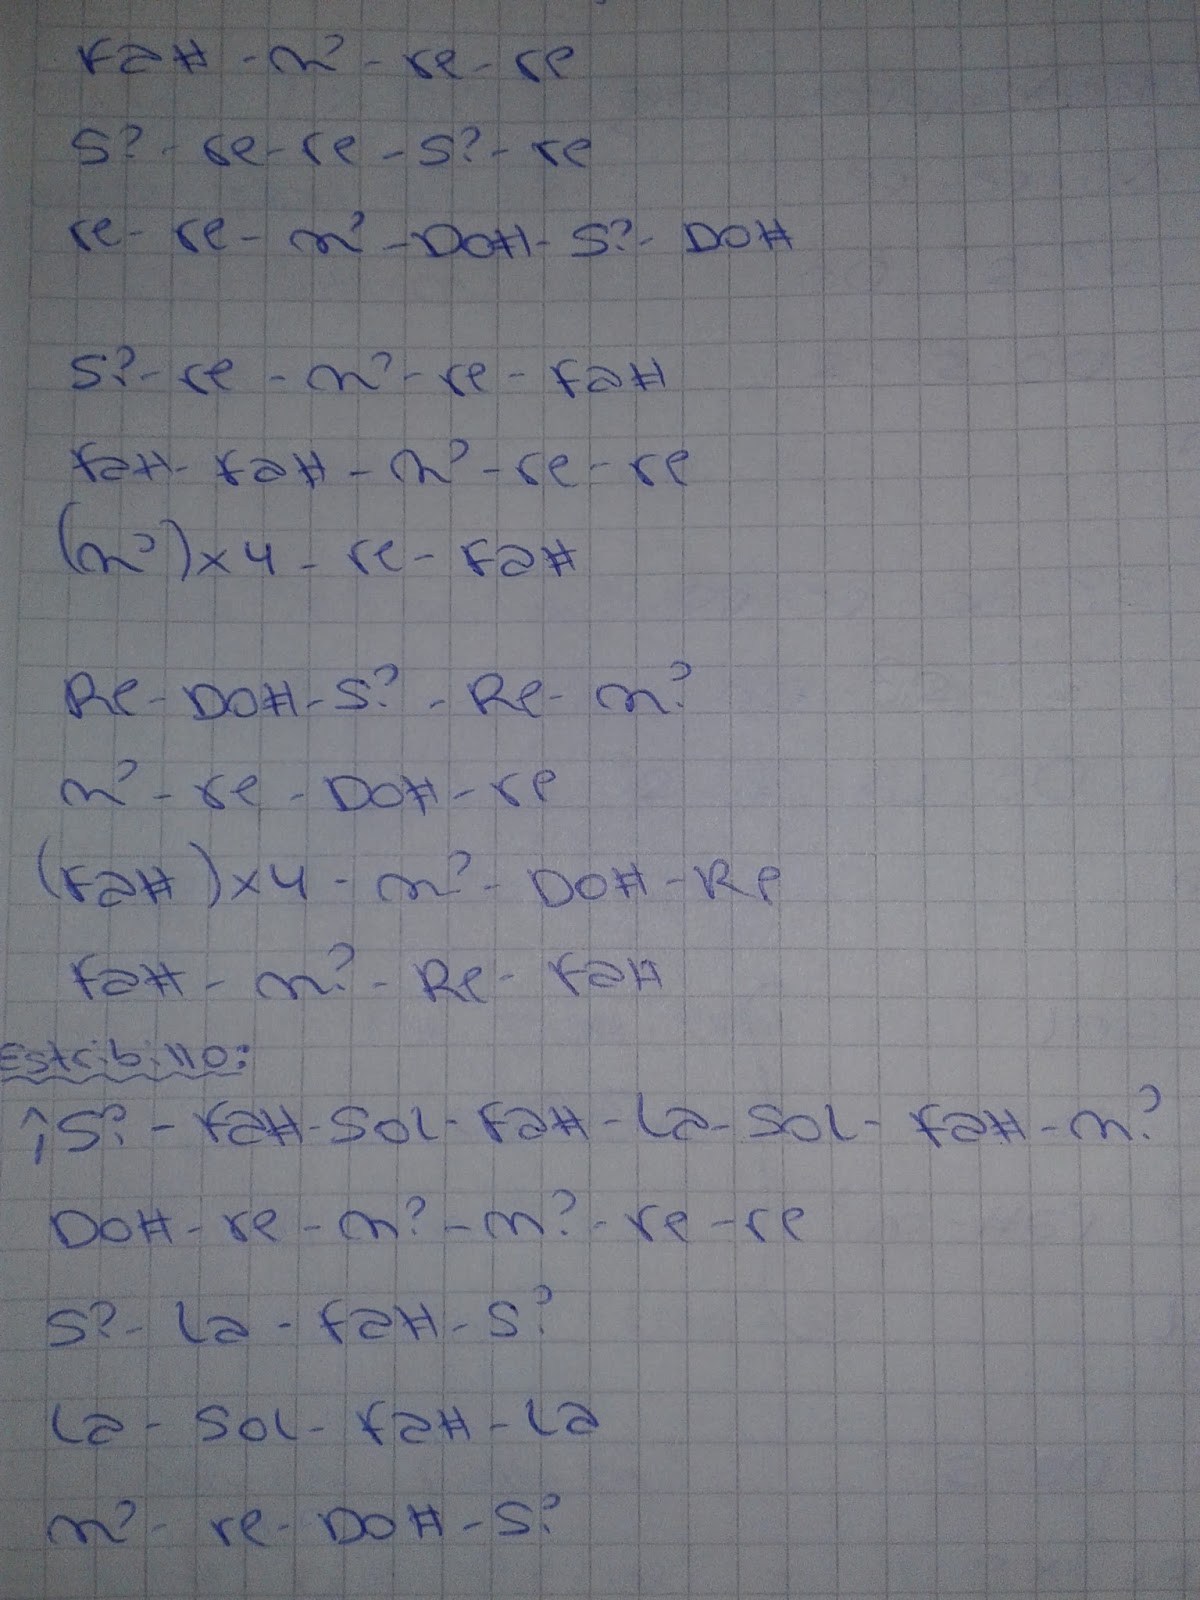 Fa# - mi - re - re
Si - re - re - Si - re
re - re - mi - Do# - Si - Do#
Si - re - mi - re - Fa#
Fa# - Fa# - mi - re - re
(mi)x4 - re - Fa#
Re - Do# - Si - Re - mi
mi - re - Do# - re
(Fa#)x4 - mi - Do# - Re
Fa# - mi - Re - Fa#
Estribillo:
¡Si - Fa# - Sol - Fa# - La - Sol - Fa# - mi
Do# - re - mi - mi - re - re
Si - La - Fa# - Si
La - Sol - Fa# - La
mi - re - Do# - Si